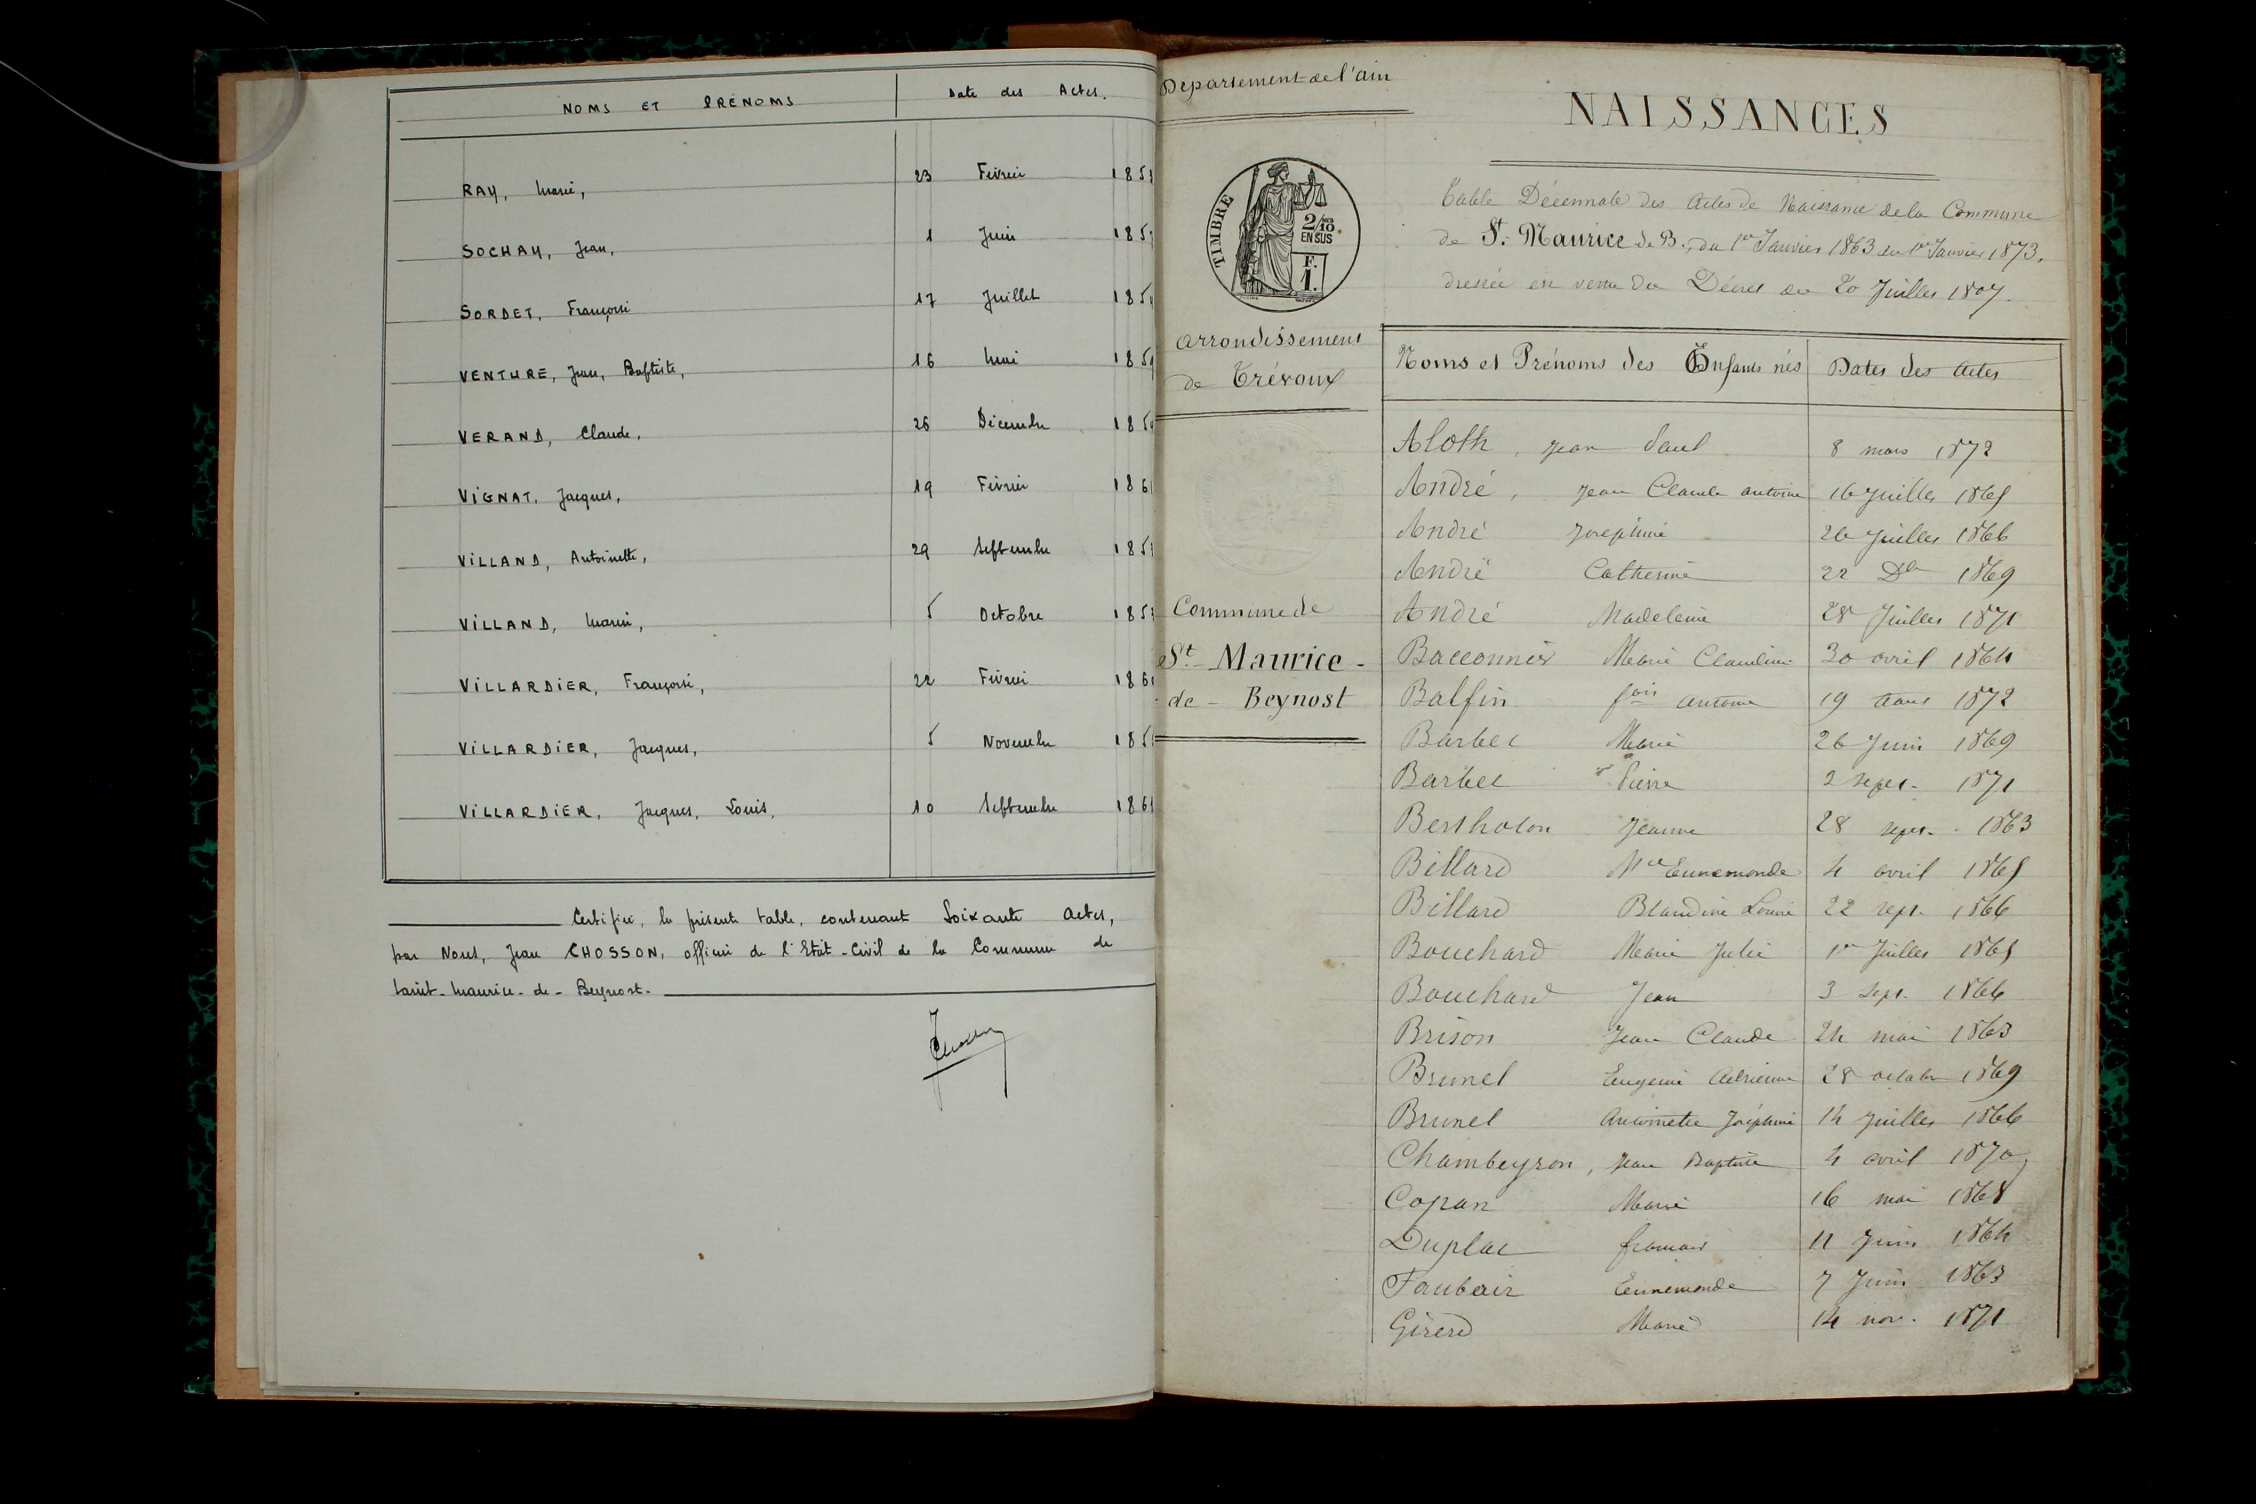 NOMS ET PRENOMS Date des Actes.
RAY, Marie, 23 Février 185
SOCHAY, Jean, 1 Juin 185
SORDET, Françoise 17 Juillet 185
VENTURE, Jean, Baptiste, 16 Mai 185
VERAND, Claude, 26 Décembre 185
VIGNAT, Jacques, 19 Février 186
VILLAND, Antoinette, 29 Septembre 185
VILLAND, Marie, 5 Octobre 185
VILLARDIER, Françoise, 22 Février 186
VILLARDIER, Jacques, 5 Novembre 185
VILLARDIER, Jacques, Louis, 10 Septembre 186
Certifiée, la présente table, contenant Soixante Actes,
par Nous, Jean CHOSSON, officier de l'Etat-Civil de la Commune de
Saint-Maurice-de-Beynost.
Departement de l'ain
TIMBRE
2/10
EN SUS
F.
1.
arrondissement
de Trévoux
Commune de
St. Maurice-
de-Beynost
NAISSANCES
Table Décennale des Actes de Naissance de la Commune
de St. Maurice de B., du 1er Janvier 1863 au 1er Janvier 1873,
dressée en vertu du Décret du 20 Juillet 1807.
Noms et Prénoms des Enfants nés Dates des Actes
Aloth, Jean Paul 8 mars 1872
André, Jean Claude antoine 16 Juillet 1865
André Joséphine 26 Juillet 1866
André Catherine 22 Do 1869
André Madeleine 28 Juillet 1871
Bacconnier Marie Claudine 30 avril 1864
Balfin fois antoine 19 aout 1872
Barbet Marie 26 Juin 1869
Barbet Pierre 2 sept. 1871
Bertholon Jeanne 28 sept. 1863
Billard Mie Ennemonde 4 avril 1865
Billard Blandine Louise 22 sept. 1866
Bouchard Marie Julie 1er Juillet 1865
Bouchard Jean 3 sept. 1866
Brison Jean Claude 24 mai 1863
Brunel Eugenie Adrienne 28 octobre 1869
Brunel Antoinette Joséphine 14 Juillet 1866
Chambeyron, Jean Baptiste 4 avril 1870
Copan Marie 16 mai 1868
Duplat francois 11 Juin 1864
Faubair Ennemonde 7 Juin 1863
Girerd Marie 14 nov. 1871